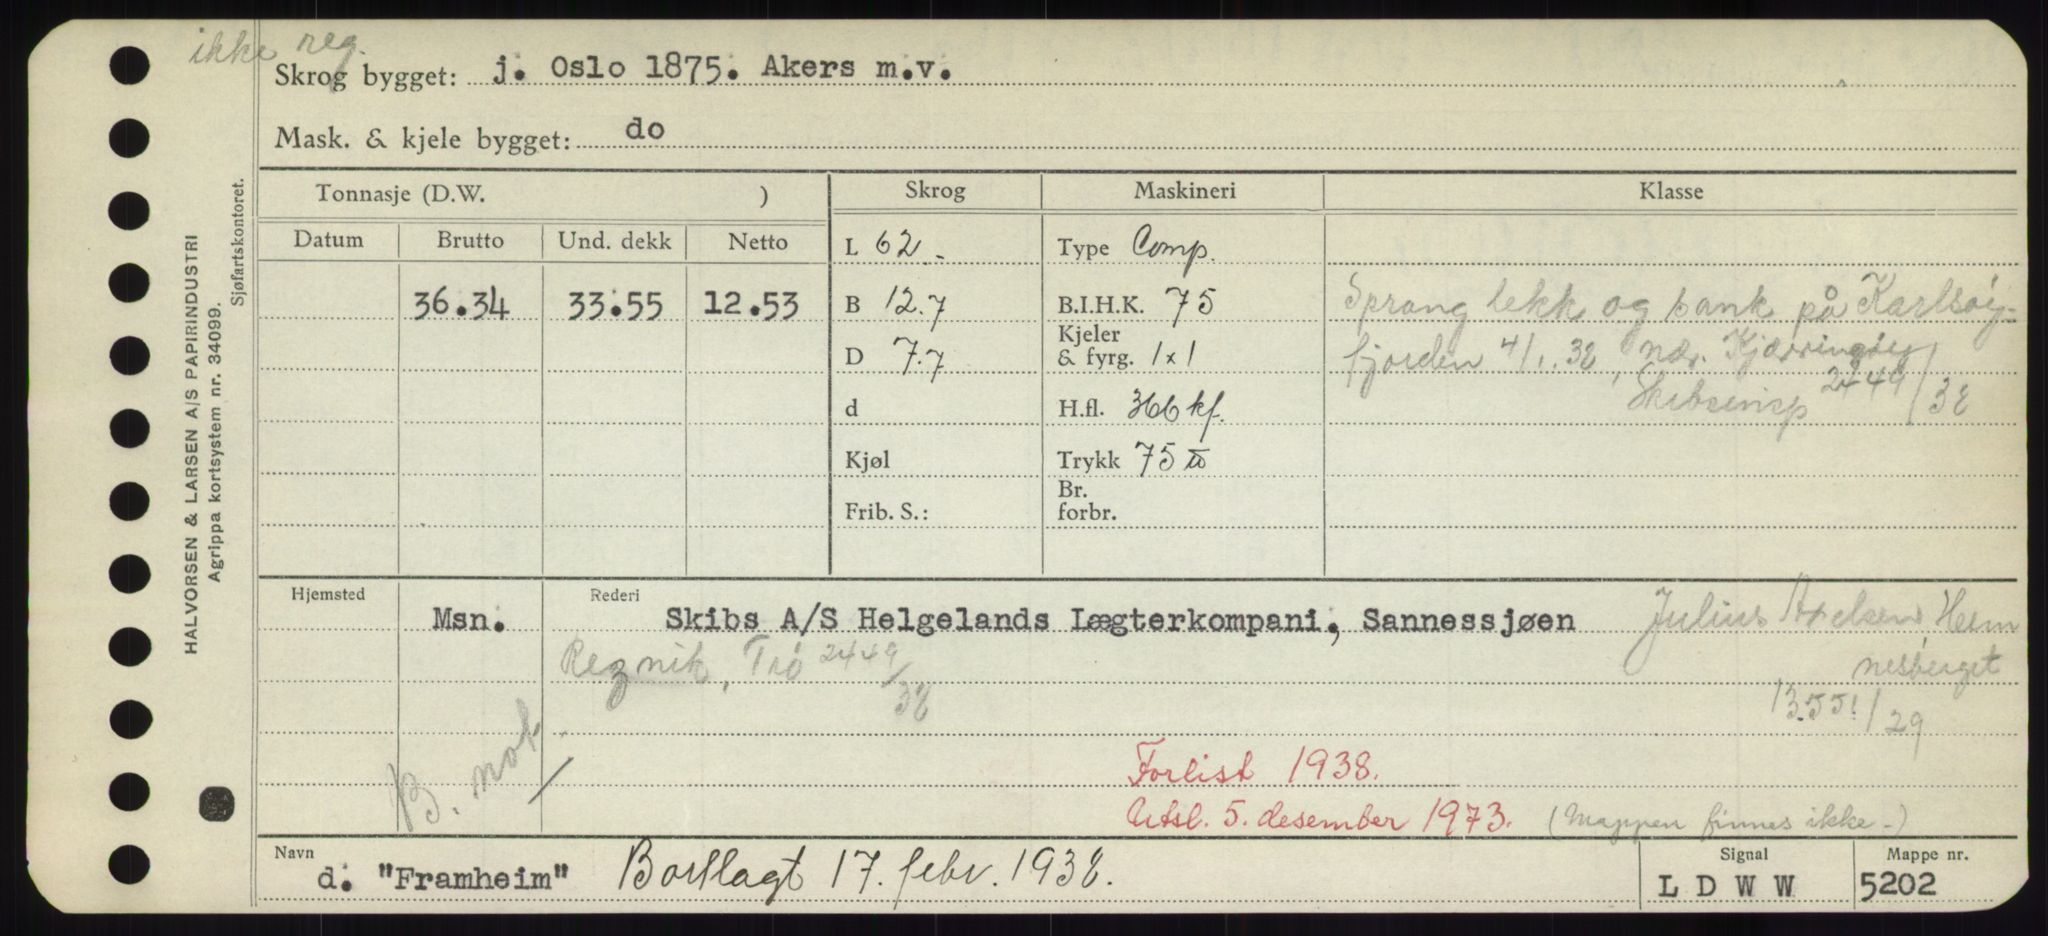 ikke reg.
Skrog bygget: j. Oslo 1875. Akers m.v.
Mask. & kjele bygget: do
HALVORSEN & LARSEN A/S PAPIRINDUSTRI
Agrippa kortsystem nr. 34099.
Sjøfartskontoret.
Tonnasje (D.W. ) Skrog Maskineri Klasse
Datum Brutto Und. dekk Netto
L 62. Type Comp.
36.34 33.55 12.53 B 12.7 B.I.H.K. 75 Sprang lekk og sank på Karlsöy-
D 7.7 Kjeler & fyrg. 1x1 fjorden 4/1.38, nær Kjærringöy
d H.fl. 366 kf. Skibsinsp 2449/38
Kjøl Trykk 75 lb
Frib. S.: Br. forbr.
Hjemsted Msn. Rederi Skibs A/S Helgelands Lægterkompani, Sannessjøen Julius Axelsen, Hem
nesberget
Reznik, Trö 2449/38
13551/29
B. not.
Forlist 1938.
Utsl. 5. desember 1973. (Mappen finnes ikke.)
Navn d. "Framheim" Bortlagt 17. febr. 1938. Signal L D W W Mappe nr. 5202